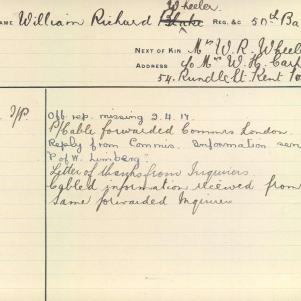 Wheeler.
NAME William Richard Blake REG. &C 50th Ba
NEXT OF KIN Mrs W. R. Wheel
ADDRESS c/o Mrs W. H. Carp
54. Rundle St. Kent To
Off. rep. missing 2.4.17.
Cable forwarded Commrs London.
Reply from Commis. Information sen
P of W. Limberg.
Letter of thanks from Inquirers
Cabled information received from
same forwarded Inquirer